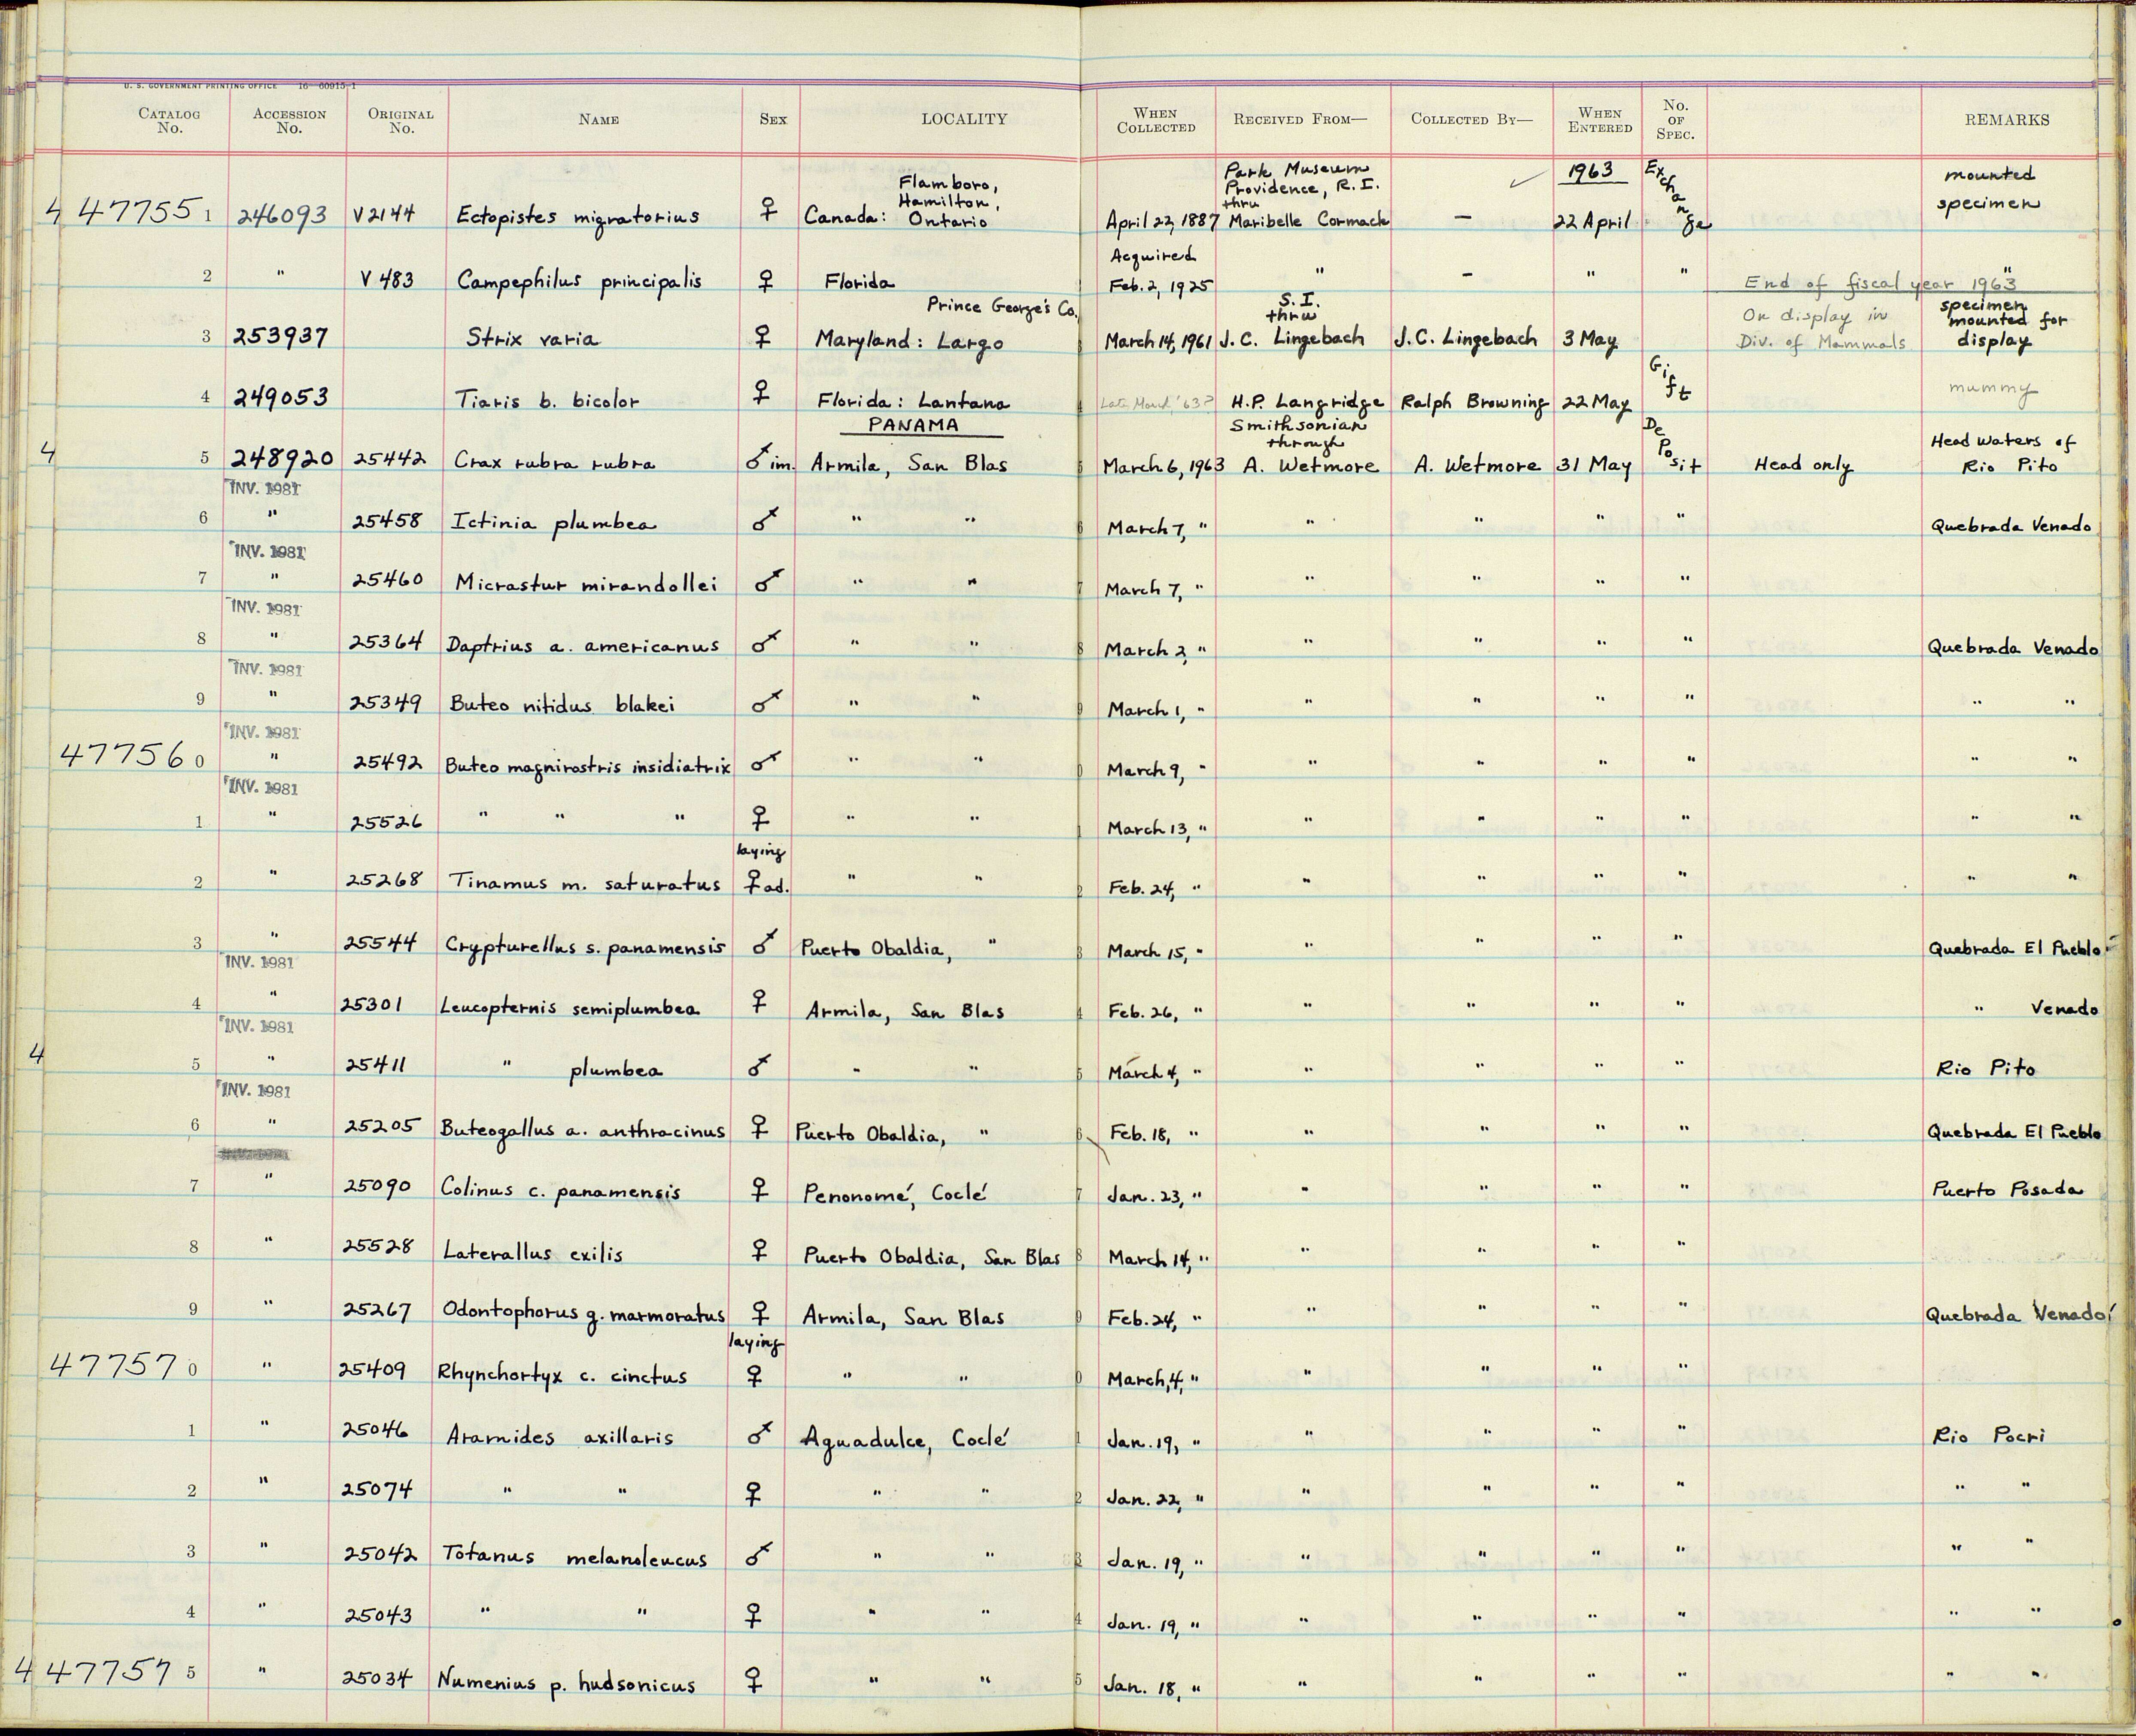 U. S. GOVERNMENT PRINTING OFFICE 16—60915-1
CATALOG No. ACCESSION No. ORIGINAL No. NAME SEX LOCALITY WHEN COLLECTED RECEIVED FROM— COLLECTED BY— WHEN ENTERED No. OF SPEC. REMARKS
Flamboro, Park Museum 1963 mounted
Hamilton, Providence, R. I. specimen
4 47755 1 246093 V2144 Ectopistes migratorius ♀ Canada: Ontario April 22, 1887 thru Maribelle Cormack — 22 April Exchange
Acquired
2 " V 483 Campephilus principalis ♀ Florida Feb. 2, 1925 " — " " "
End of fiscal year 1963
Prince George's Co. S. I. thru On display in specimen mounted for
3 253937 Strix varia ♀ Maryland: Largo March 14, 1961 J. C. Lingebach J. C. Lingebach 3 May Div. of Mammals display
4 249053 Tiaris b. bicolor ♀ Florida: Lantana Late March '63? H.P. Langridge Ralph Browning 22 May Gift mummy
PANAMA Smithsonian through Head waters of
4 5 248920 25442 Crax rubra rubra ♂ im. Armila, San Blas March 6, 1963 A. Wetmore A. Wetmore 31 May Deposit Head only Rio Pito
INV. 1981
6 " 25458 Ictinia plumbea ♂ " " March 7, " " " " " Quebrada Venado
INV. 1981
7 " 25460 Micrastur mirandollei ♂ " " March 7, " " " " "
INV. 1981
8 " 25364 Daptrius a. americanus ♂ " " March 2, " " " " " Quebrada Venado
INV. 1981
9 " 25349 Buteo nitidus blakei ♂ " " March 1, " " " " " " "
INV. 1981
47756 0 " 25492 Buteo magnirostris insidiatrix ♂ " " March 9, " " " " " " "
INV. 1981
1 " 25526 " " " ♀ " " March 13, " " " " " " "
laying
2 " 25268 Tinamus m. saturatus ♀ ad. " " Feb. 24, " " " " " " "
3 " 25544 Crypturellus s. panamensis ♂ Puerto Obaldia, " March 15, " " " " " Quebrada El Pueblo
INV. 1981
4 " 25301 Leucopternis semiplumbea ♀ Armila, San Blas Feb. 26, " " " " " " Venado
INV. 1981
4 5 " 25411 " plumbea ♂ " " March 4, " " " " " Rio Pito
INV. 1981
6 " 25205 Buteogallus a. anthracinus ♀ Puerto Obaldia, " Feb. 18, " " " " " Quebrada El Pueblo
7 " 25090 Colinus c. panamensis ♀ Penonomé, Coclé Jan. 23, " " " " " Puerto Posada
8 " 25528 Laterallus exilis ♀ Puerto Obaldia, San Blas March 14, " " " " "
9 " 25267 Odontophorus g. marmoratus ♀ Armila, San Blas Feb. 24, " " " " " Quebrada Venado
laying
47757 0 " 25409 Rhynchortyx c. cinctus ♀ " " March, 4, " " " " "
1 " 25046 Aramides axillaris ♂ Aguadulce, Coclé Jan. 19, " " " " " Rio Pocri
2 " 25074 " " ♀ " " Jan. 22, " " " " " " "
3 " 25042 Totanus melanoleucus ♂ " " Jan. 19, " " " " " " "
4 " 25043 " " ♀ " " Jan. 19, " " " " " " "
4 47757 5 " 25034 Numenius p. hudsonicus ♀ " " Jan. 18, " " " " " " "